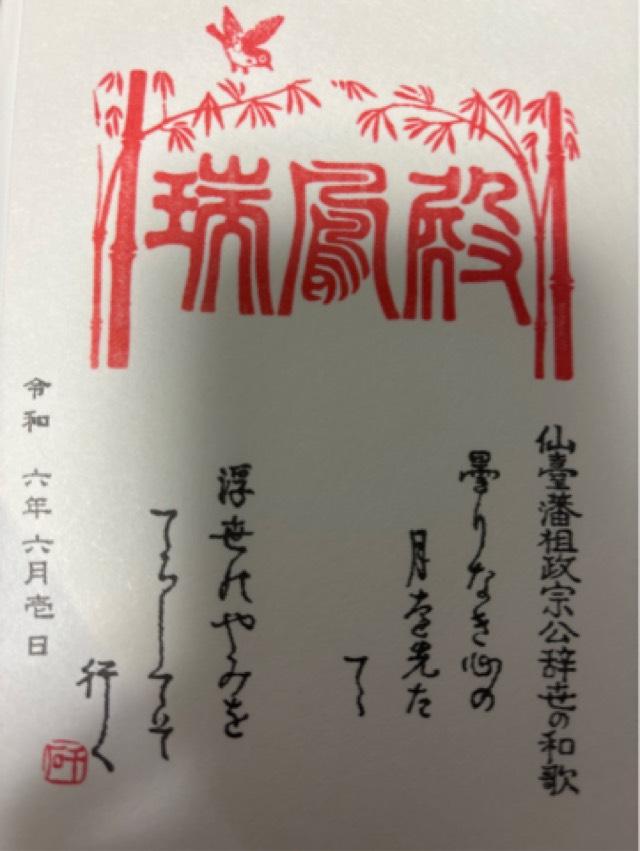 瑞鳳殿
仙臺藩祖政宗公辞世の和歌
曇りなき心の
月を先た
てゝ
浮世のやみを
てらしてそ
行く
令和 六年 六月壱日